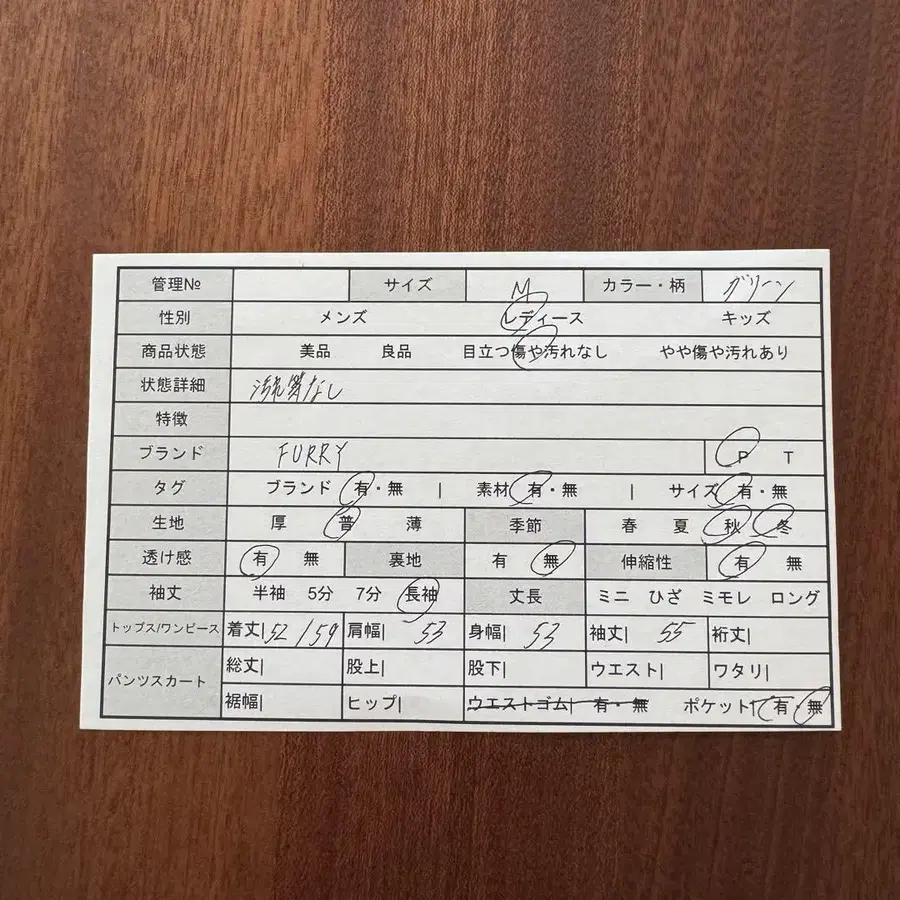 管理№ サイズ M カラー・柄 グリーン
性別 メンズ レディース キッズ
商品状態 美品 良品 目立つ傷や汚れなし やや傷や汚れあり
状態詳細 汚れ等なし
特徴
ブランド FURRY P T
タグ ブランド 有・無 | 素材 有・無 | サイズ 有・無
生地 厚 普 薄 季節 春 夏 秋 冬
透け感 有 無 裏地 有 無 伸縮性 有 無
袖丈 半袖 5分 7分 長袖 丈長 ミニ ひざ ミモレ ロング
トップス/ワンピース 着丈| 52/59 肩幅| 53 身幅| 53 袖丈| 55 裄丈|
パンツスカート 総丈| 股上| 股下| ウエスト| ワタリ|
裾幅| ヒップ| ウエストゴム| 有・無 ポケット| 有・無